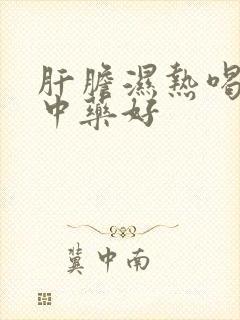 肝膽濕熱喝
中藥好
冀中南